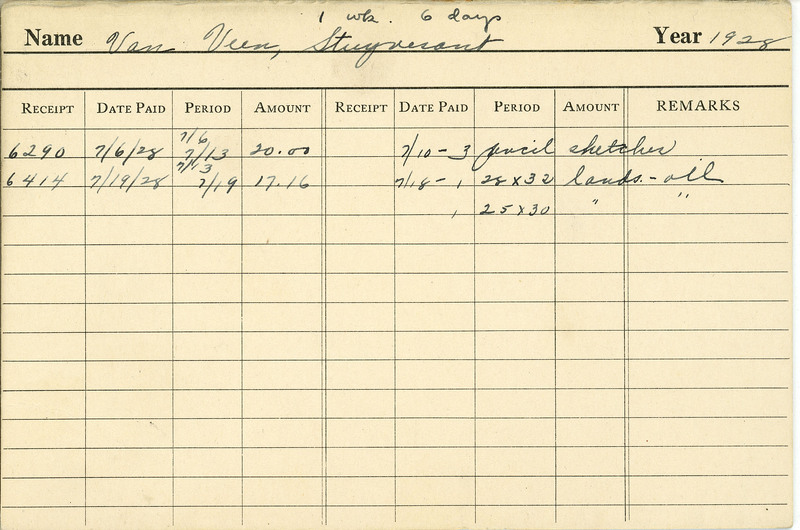 1 wk. 6 days
Name Van Veen, Stuyvesant Year 1928
RECEIPT DATE PAID PERIOD AMOUNT RECEIPT DATE PAID PERIOD AMOUNT REMARKS
7/6
6290 7/6/28 7/13 20.00 7/10 - 3 pencil sketches
7/13
6414 7/19/28 7/19 17.16 7/18 - 1 28 x 32 lands. - oil
1 25 x 30 " "